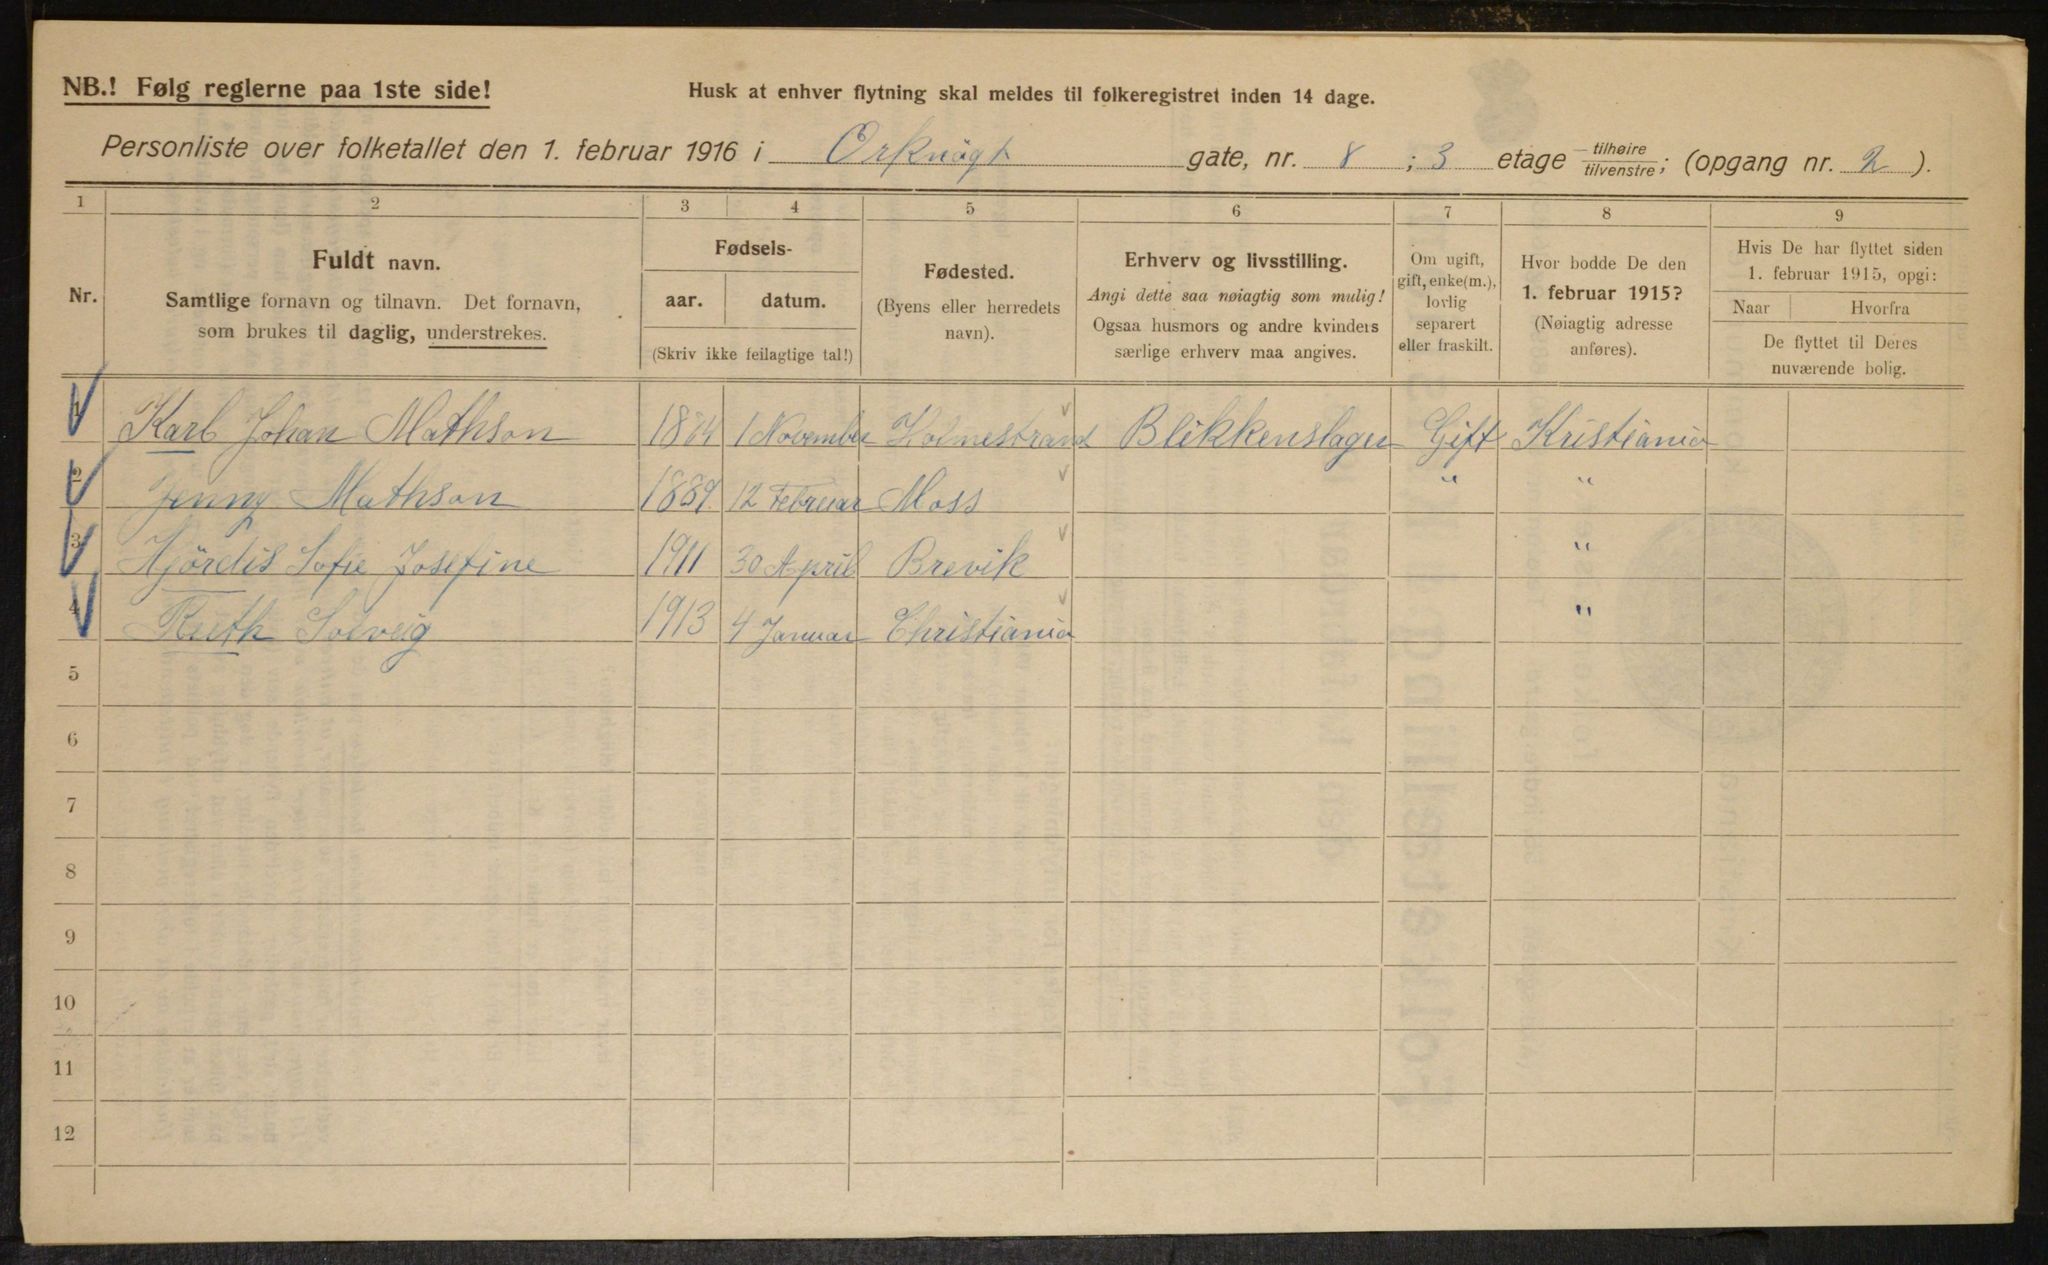 NB.! Følg reglerne paa 1ste side!
Husk at enhver flytning skal meldes til folkeregistret inden 14 dage.
Personliste over folketallet den 1. februar 1916 i Orknögt gate, nr. 8 ; 3 etage tilhøire / tilvenstre ; (opgang nr. 2 ).
1 2 3 4 5 6 7 8 9
Nr.
Fuldt navn.
Samtlige fornavn og tilnavn. Det fornavn,
som brukes til daglig, understrekes.
Fødsels-
aar. datum.
(Skriv ikke feilagtige tal!)
Fødested.
(Byens eller herredets
navn).
Erhverv og livsstilling.
Angi dette saa nøiagtig som mulig!
Ogsaa husmors og andre kvinders
særlige erhverv maa angives.
Om ugift,
gift, enke(m.),
lovlig
separert
eller fraskilt.
Hvor bodde De den
1. februar 1915?
(Nøiagtig adresse
anføres).
Hvis De har flyttet siden
1. februar 1915, opgi:
Naar Hvorfra
De flyttet til Deres
nuværende bolig.
1 Karl Johan Mathson 1 November Holmestrand Blikkenslager Gift Kristiania
2 Jenny Mathson 1889 12 Februar Moss " "
3 Hjördis Sofie Josefine 1911 30 April Brevik "
4 Ruth Solveig 1913 4 Januar Christiania "
5
6
7
8
9
10
11
12